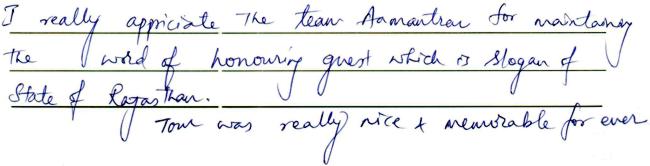 I really appriciate The team Aamantran for maintaining
the word of honouring guest which is slogan of
State of Rajasthan.
Tour was really nice & memorable for ever